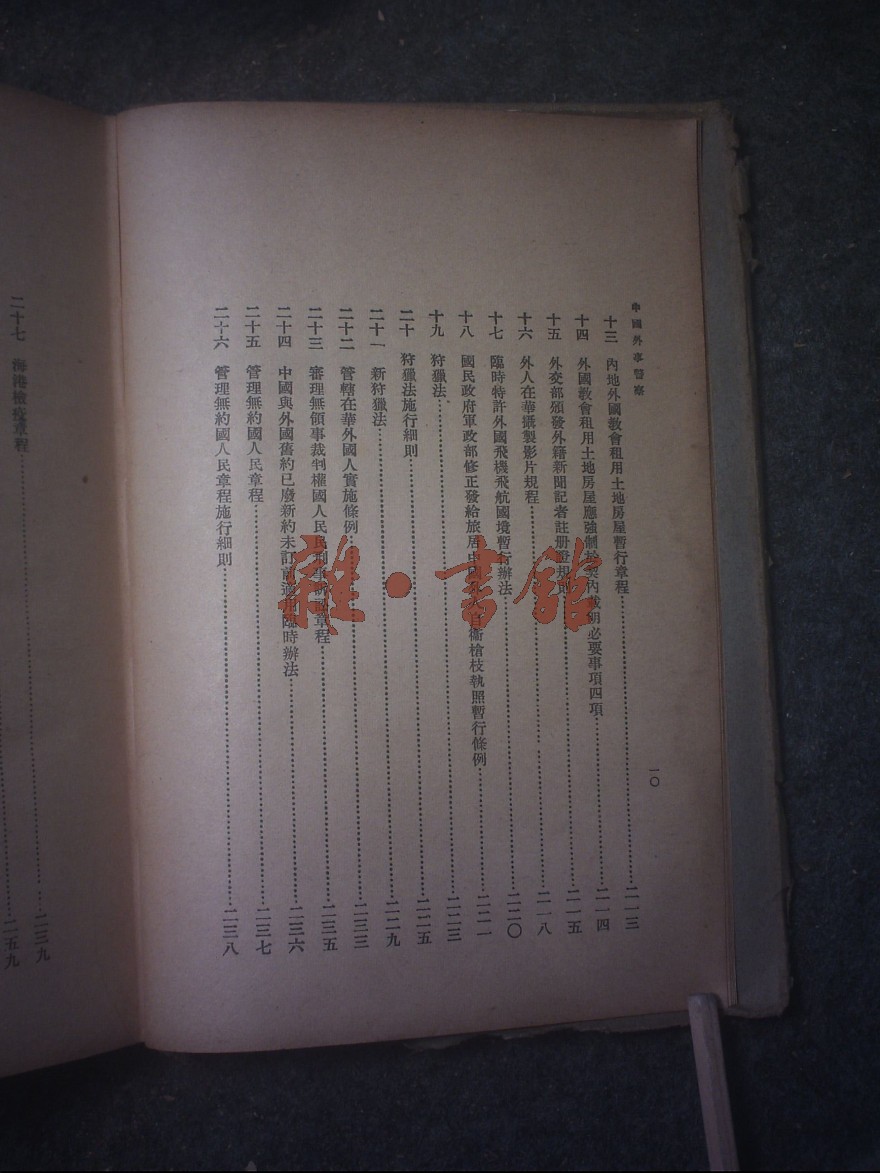 中國外事警察
一〇
十三 內地外國教會租用土地房屋暫行章程……二一三
十四 外國教會租用土地房屋應強制於契內載明必要事項四項……二一四
十五 外交部頒發外籍新聞記者註册證規則……二一五
十六 外人在華攝製影片規程……二一八
十七 臨時特許外國飛機飛航國境暫行辦法……二二〇
十八 國民政府軍政部修正發給旅居中國外人自衞槍枝執照暫行條例……二二一
十九 狩獵法……二二三
二十 狩獵法施行細則……二二五
二十一 新狩獵法……二二九
二十二 管轄在華外國人實施條例……二三三
二十三 審理無領事裁判權國人民民刑事訴訟章程……二三五
二十四 中國與外國舊約已廢新約未訂前適用臨時辦法……二三六
二十五 管理無約國人民章程……二三七
二十六 管理無約國人民章程施行細則……二三八
二十七 海港檢疫章程……二三九
二五九
雜·書館